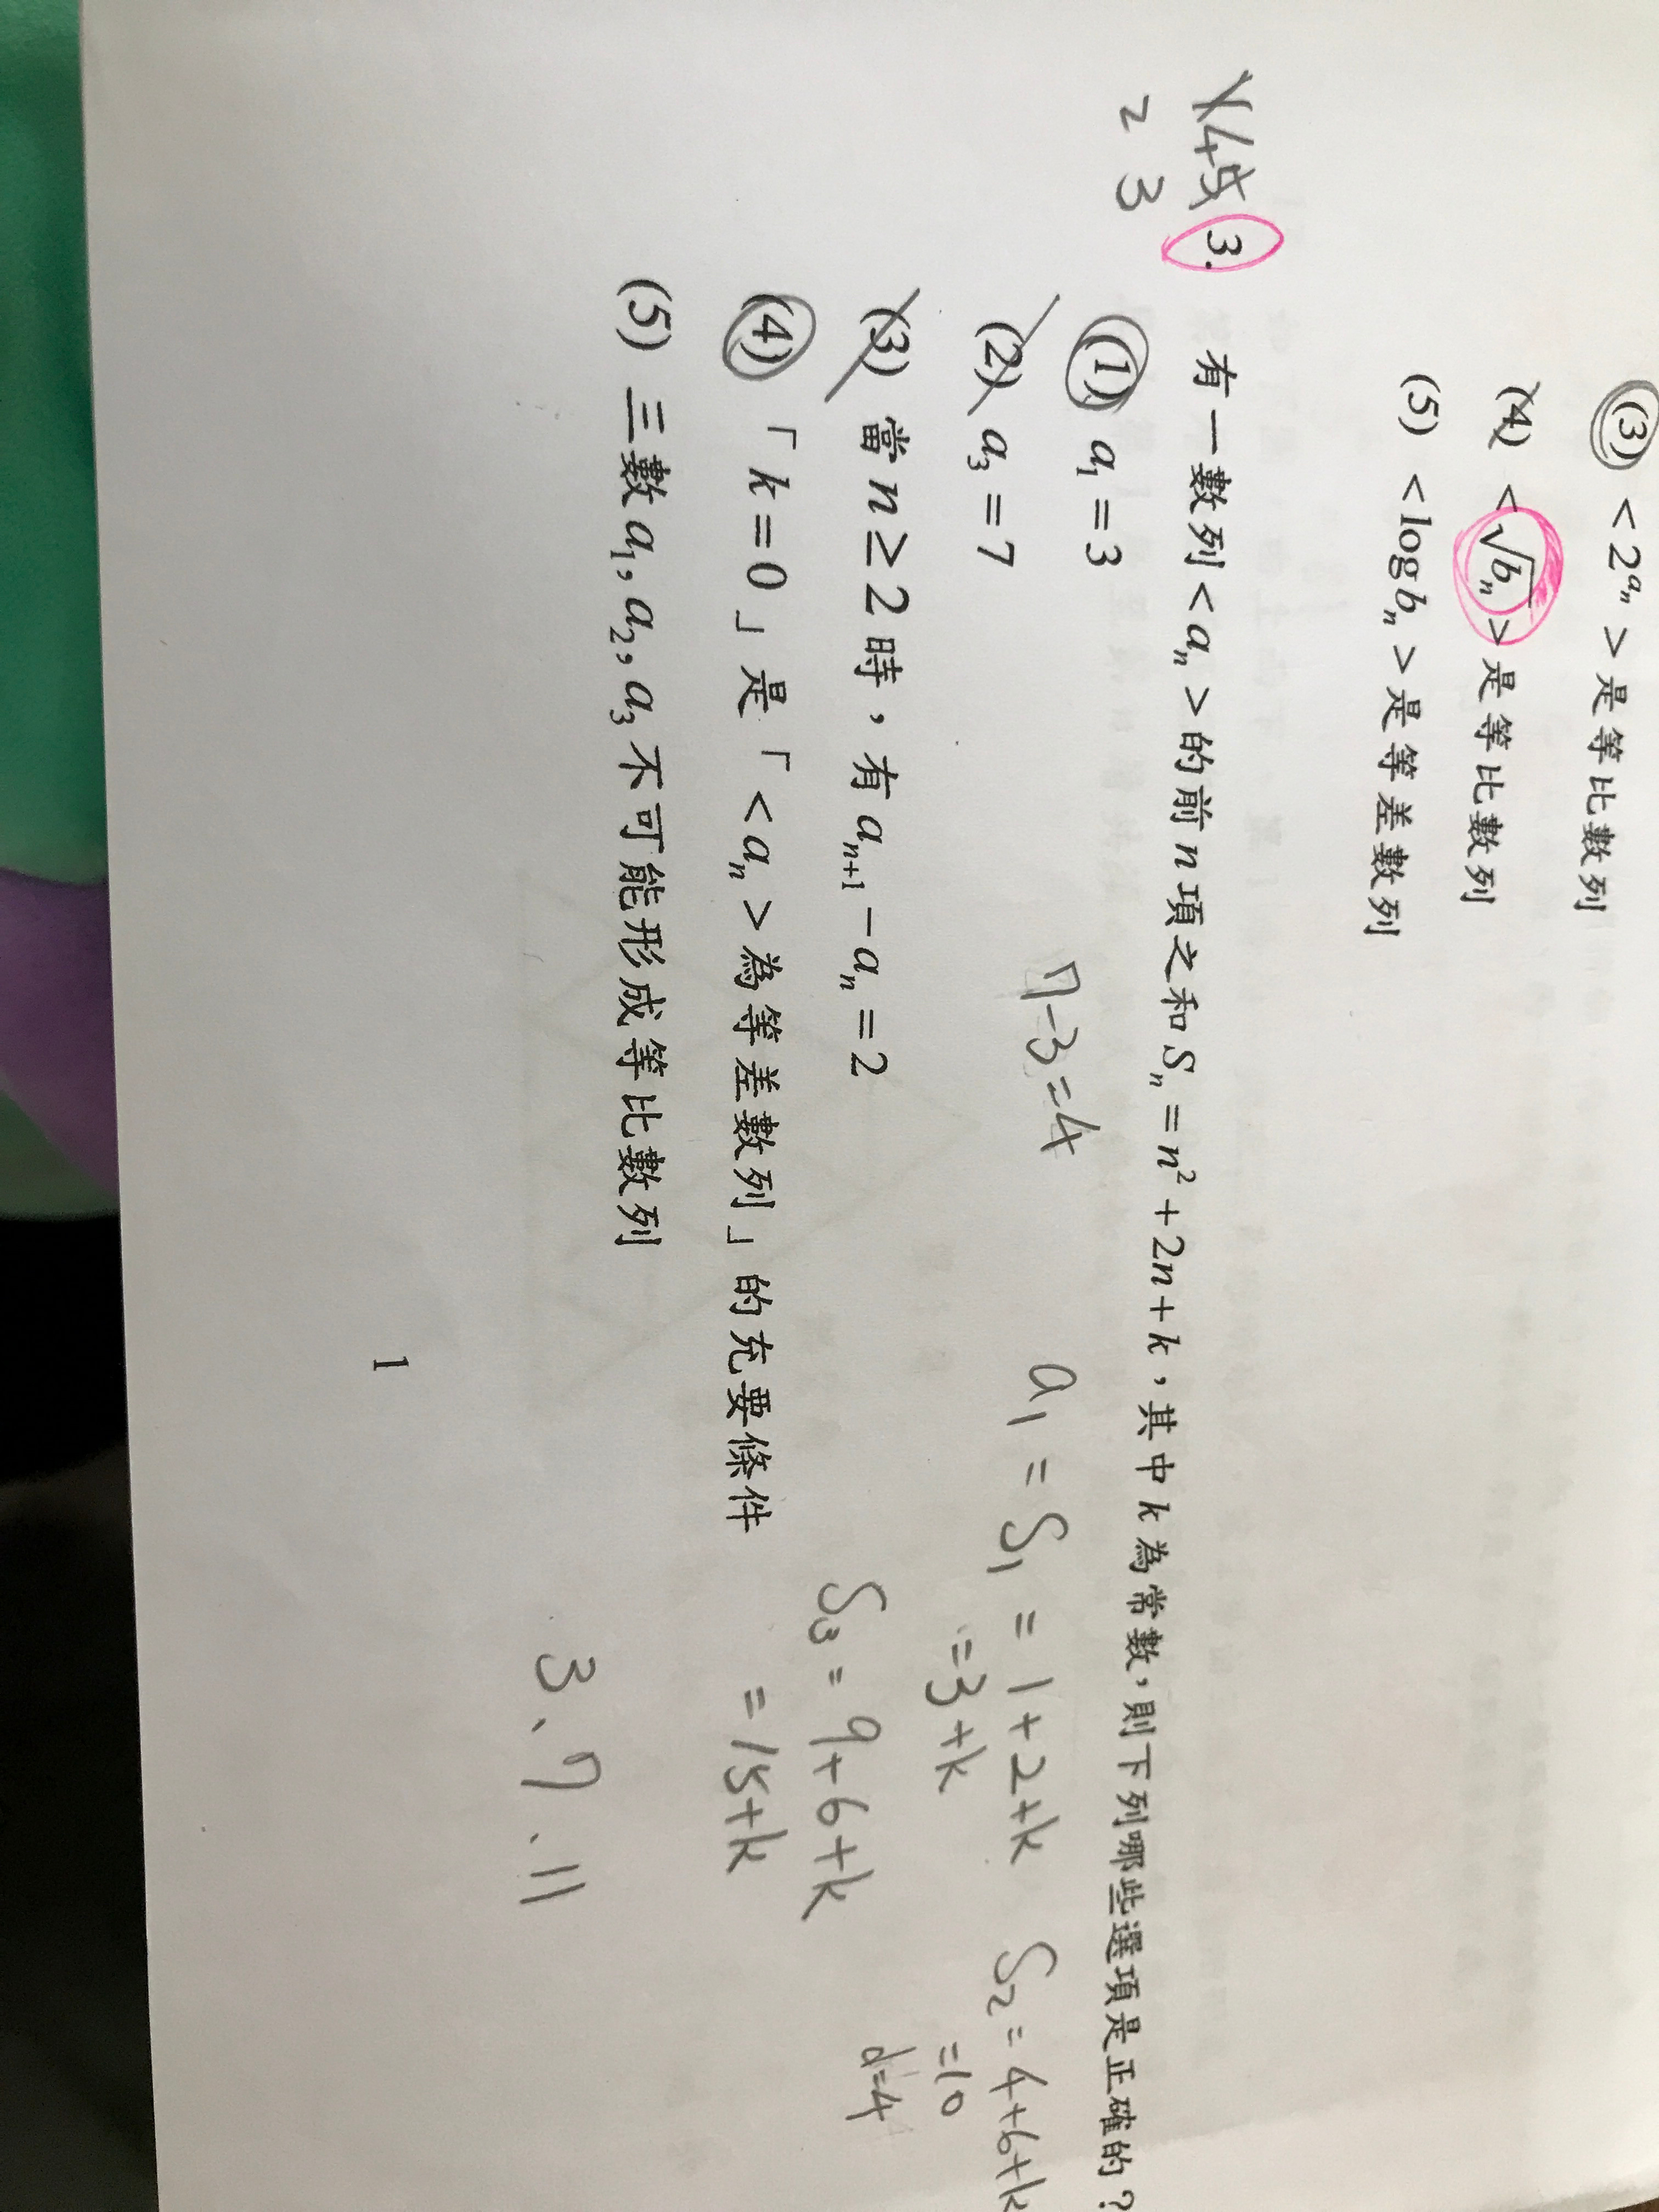 (3) < 2^{a_n} > 是等比數列
(4) < √b_n > 是等比數列
(5) < log b_n > 是等差數列
1 4 5
2 3
3. 有一數列 < a_n > 的前 n 項之和 S_n = n² + 2n + k，其中 k 為常數，則下列哪些選項是正確的？
(1) a₁ = 3
(2) a₃ = 7
(3) 當 n ≥ 2 時，有 a_{n+1} − a_n = 2
(4) 「k = 0」是「< a_n > 為等差數列」的充要條件
(5) 三數 a₁, a₂, a₃ 不可能形成等比數列
7-3=4
a₁ = S₁ = 1+2+k
=3+k
S₂ = 4+6+k
=10
d=4
S₃ = 9+6+k
=15+k
3、7、11
1